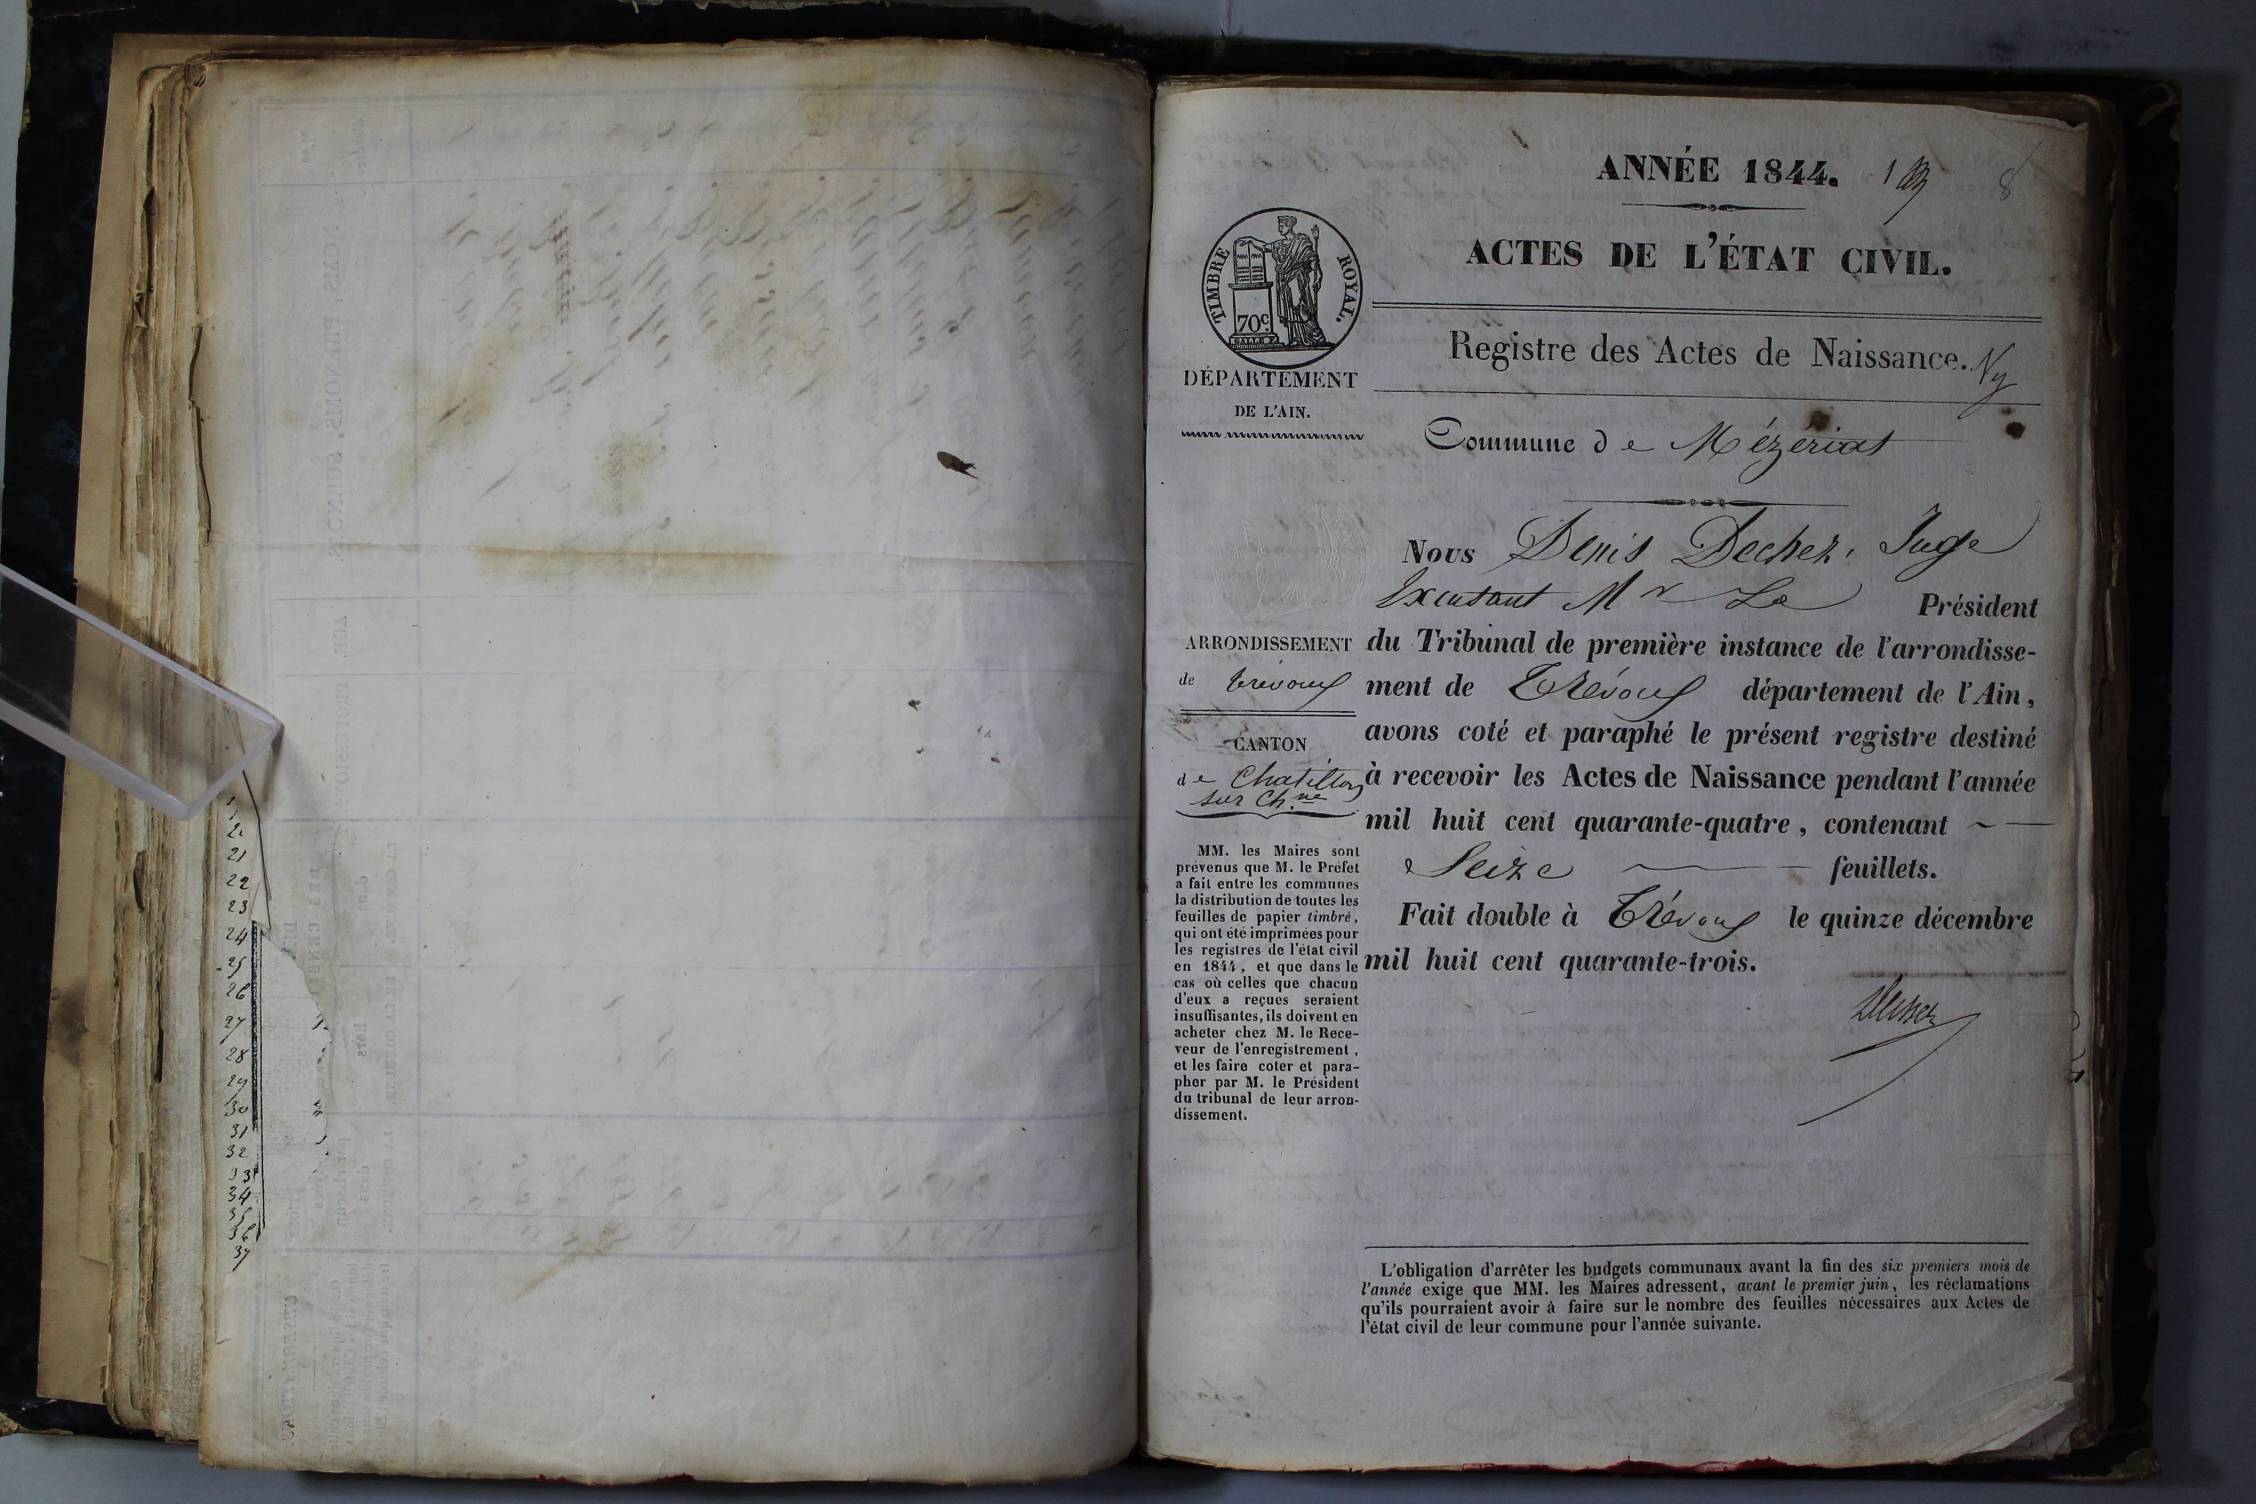 21
22
23
24
25
26
27
28
29
30
31
32
33
34
35
36
37
ANNÉE 1844.
8
ACTES DE L'ÉTAT CIVIL.
TIMBRE ROYAL.
70c
DÉPARTEMENT
DE L'AIN.
Registre des Actes de Naissance.
Commune de Mézériat
Nous Denis Dechez, Juge
Excusant Mr Le Président
du Tribunal de première instance de l'arrondisse-
ment de Trévoux département de l'Ain,
avons coté et paraphé le présent registre destiné
à recevoir les Actes de Naissance pendant l'année
mil huit cent quarante-quatre, contenant
Seize feuillets.
Fait double à Trévoux le quinze décembre
mil huit cent quarante-trois.
Dechez
ARRONDISSEMENT
de Trévoux
CANTON
de Chatillon
sur Ch.ne
MM. les Maires sont
prévenus que M. le Préfet
a fait entre les communes
la distribution de toutes les
feuilles de papier timbré,
qui ont été imprimées pour
les registres de l'état civil
en 1844, et que dans le
cas où celles que chacun
d'eux a reçues seraient
insuffisantes, ils doivent en
acheter chez M. le Rece-
veur de l'enregistrement,
et les faire coter et para-
pher par M. le Président
du tribunal de leur arron-
dissement.
L'obligation d'arrêter les budgets communaux avant la fin des six premiers mois de
l'année exige que MM. les Maires adressent, avant le premier juin, les réclamations
qu'ils pourraient avoir à faire sur le nombre des feuilles nécessaires aux Actes de
l'état civil de leur commune pour l'année suivante.